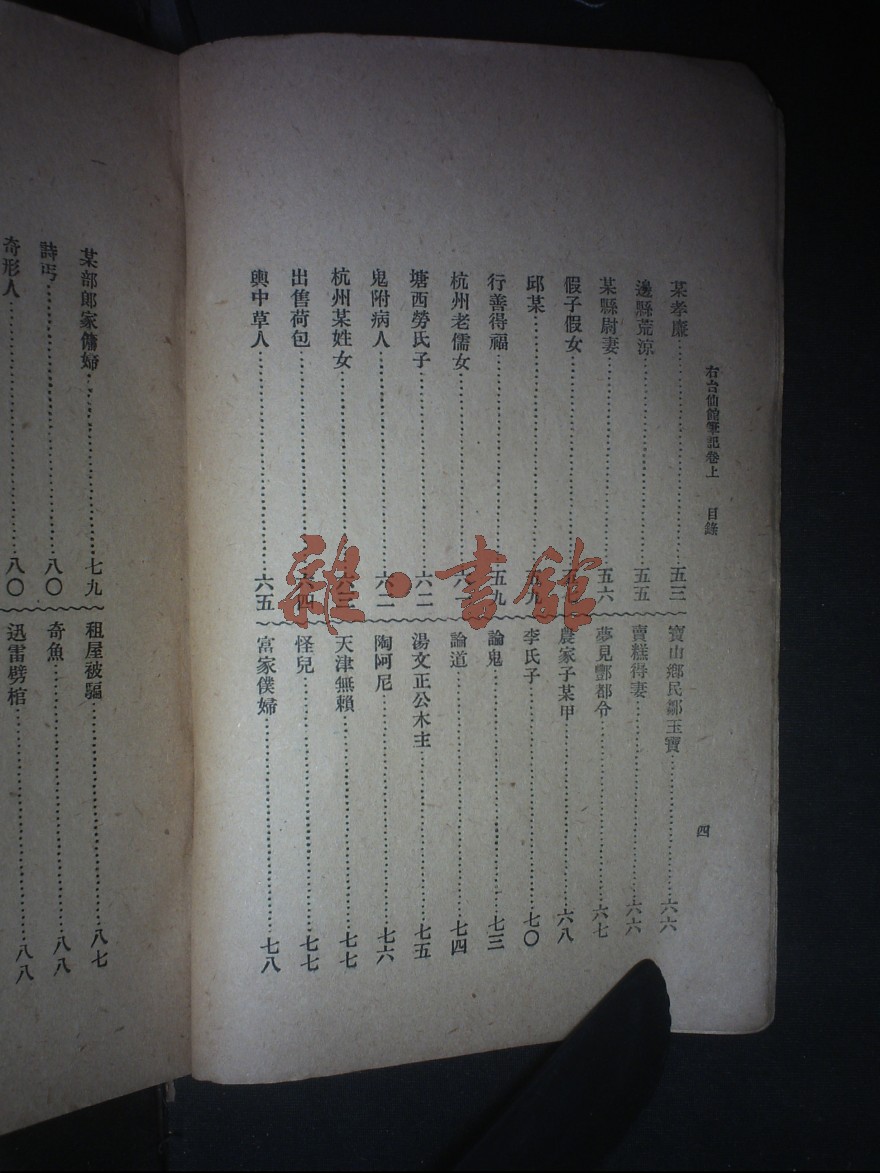 右台仙館筆記卷上 目錄
四
某孝廉……五三
邊縣荒涼……五五
某縣尉妻……五六
假子假女……五七
邱某……五九
行善得福……五九
杭州老儒女……六一
塘西勞氏子……六二
鬼附病人……六二
杭州某姓女……六三
出售荷包……六四
輿中草人……六五
寶山鄉民鄒玉寶……六六
賣糕得妻……六六
夢見酆都令……六七
農家子某甲……六八
李氏子……七〇
論鬼……七三
論道……七四
湯文正公木主……七五
陶阿尼……七六
天津無賴……七七
怪兒……七七
富家僕婦……七八
某部郎家傭婦……七九
詩丐……八〇
奇形人……八〇
租屋被驅……八七
奇魚……八八
迅雷劈棺……八八
雜·書館